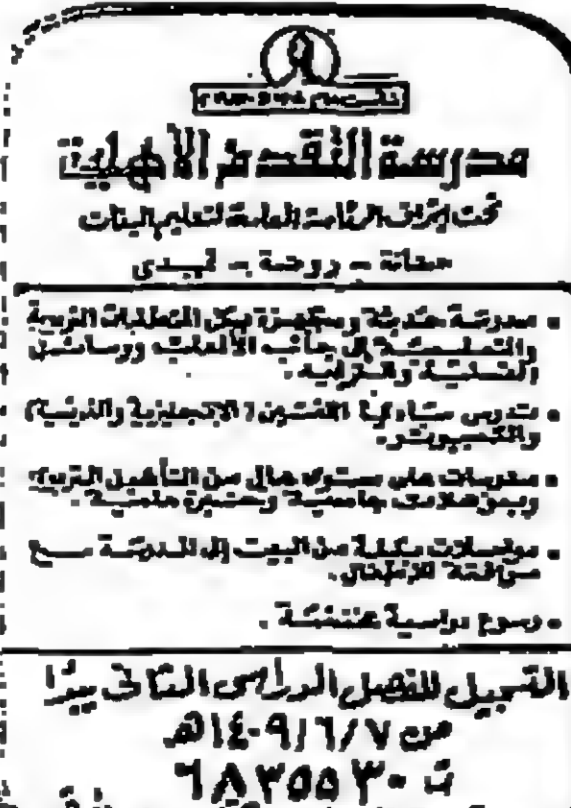 مدرسة التقدم الأهلية
تحت إشراف الرئاسة العامة لتعليم البنات
حضانة - روضة - تمهيدى
• مدرسة حديثة ومجهزة بكل المتطلبات التربوية
والتعليمية إلى جانب الألعاب ووسائل
التسلية والترفيه.
• تدرس اللغتين (الإنجليزية والفرنسية)
والكمبيوتر.
• مدرسات على مستوى عال من التأهيل التربوى
وبمؤهلات جامعية وخبرة علمية.
• مواصلات مكيفة من البيت إلى المدرسة مع
مرافقة للأطفال.
• رسوم دراسية مخفضة.
التسجيل للفصل الدراسى الثانى يبدأ
من ١٤٠٩/٦/٧هـ
ت ٦٨٣٥٥٣٠